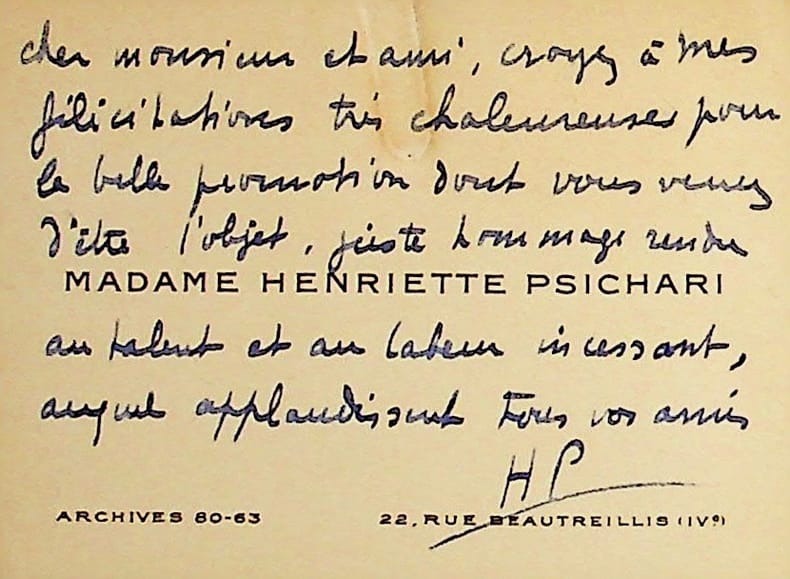 cher monsieur et ami, croyez à mes
félicitations très chaleureuses pour
la belle promotion dont vous venez
d'être l'objet, juste hommage rendu
MADAME HENRIETTE PSICHARI
au talent et au labeur incessant,
auquel applaudissent tous vos amis
HP
ARCHIVES 80-63
22, RUE BEAUTREILLIS (IVe)